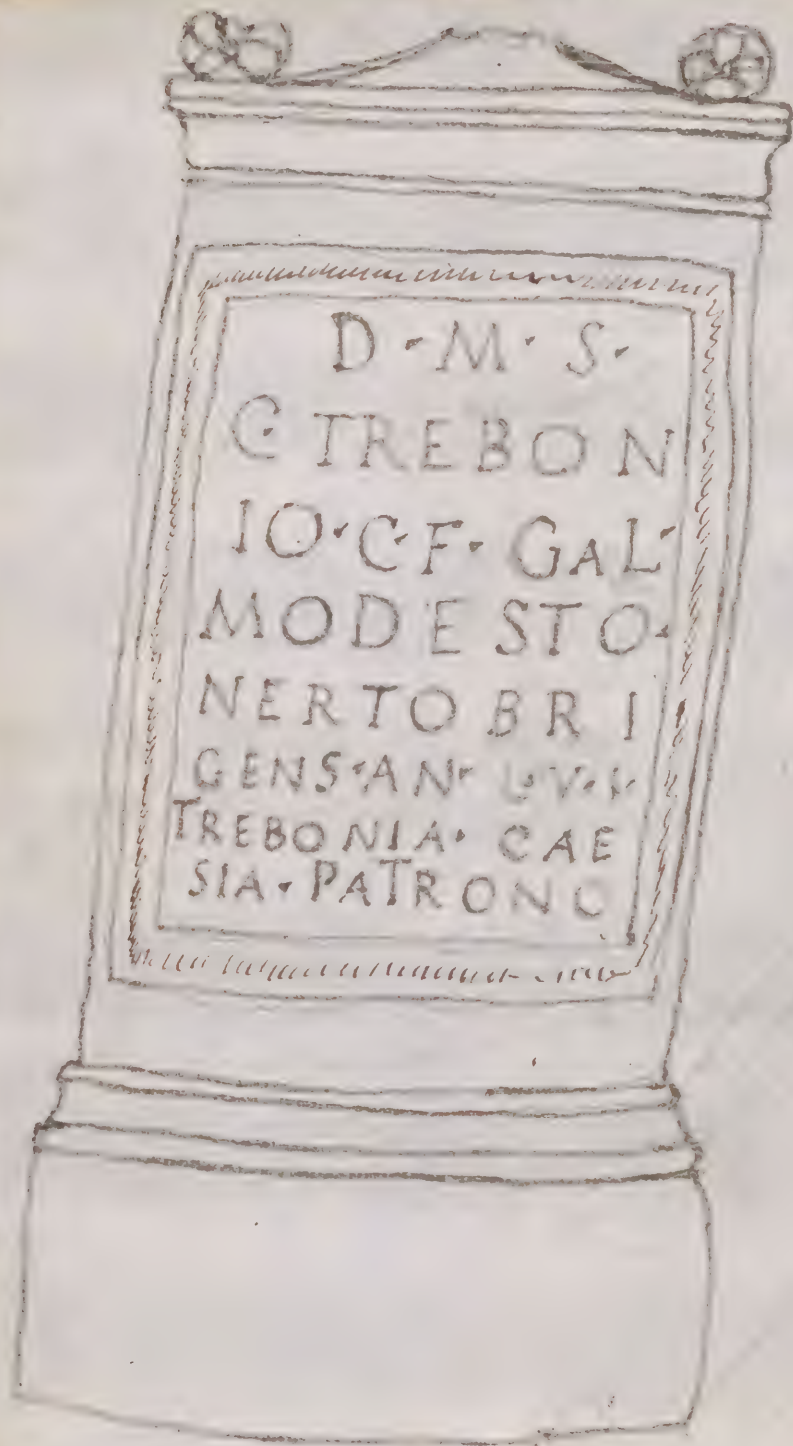 D · M · S ·
C · TREBON
IO · C · F · GAL ·
MODESTO ·
NERTOBRI
GENS · AN ·
TREBONIA · CAE
SIA · PATRONO